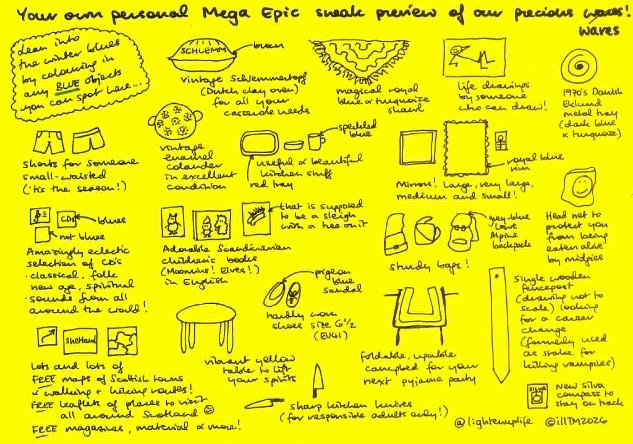 Your own personal Mega Epic sneak preview of our precious waves!
waves
Lean into
the winter blues
by colouring in
any BLUE objects
you can spot here...
SCHLEMM
brown
vintage Schlemmertopf
(Dutch clay oven)
for all your
casserole needs
magical royal
blue & turquoise
shawl
life drawings
by someone
who can draw!
1970's Danish
Eklund
metal tray
(dark blue
& turquoise)
shorts for someone
small-waisted
('tis the season!)
vintage
enamel
colander
in excellent
condition
speckled
blue
useful & beautiful
kitchen stuff
red tray
royal blue
rim
Mirrors! Large, very large,
medium and small!
Head net to
protect you
from being
eaten alive
by midgies
CDs
blues
not blues
Amazingly eclectic
selection of CD's
· classical, folk
new age, spiritual
· sounds from all
around the world!
that is supposed
to be a sleigh
with a tree on it
Adorable Scandinavian
children's books
(Moomins! Elves!)
in English
grey blue
Lowe
Alpine
backpack
sturdy bags!
pigeon
blue
sandal
hardly worn
shoes size 6½
(EU41)
single wooden
fencepost
(drawing not to
scale) looking
for a career
change
(formerly used
as stake for
killing vampires)
Shetland
Lots and lots of
FREE maps of Scottish towns
& walking & hiking routes!
FREE leaflets of places to visit
all around Scotland
FREE magazines, material & more!
vibrant yellow
table to lift
your spirits
foldable, upable
campbed for your
next pyjama party
sharp kitchen knives
(for responsible adults only!)
SILVA
New Silva
compass to
stay on track
@lightemuplife ©illTM2026